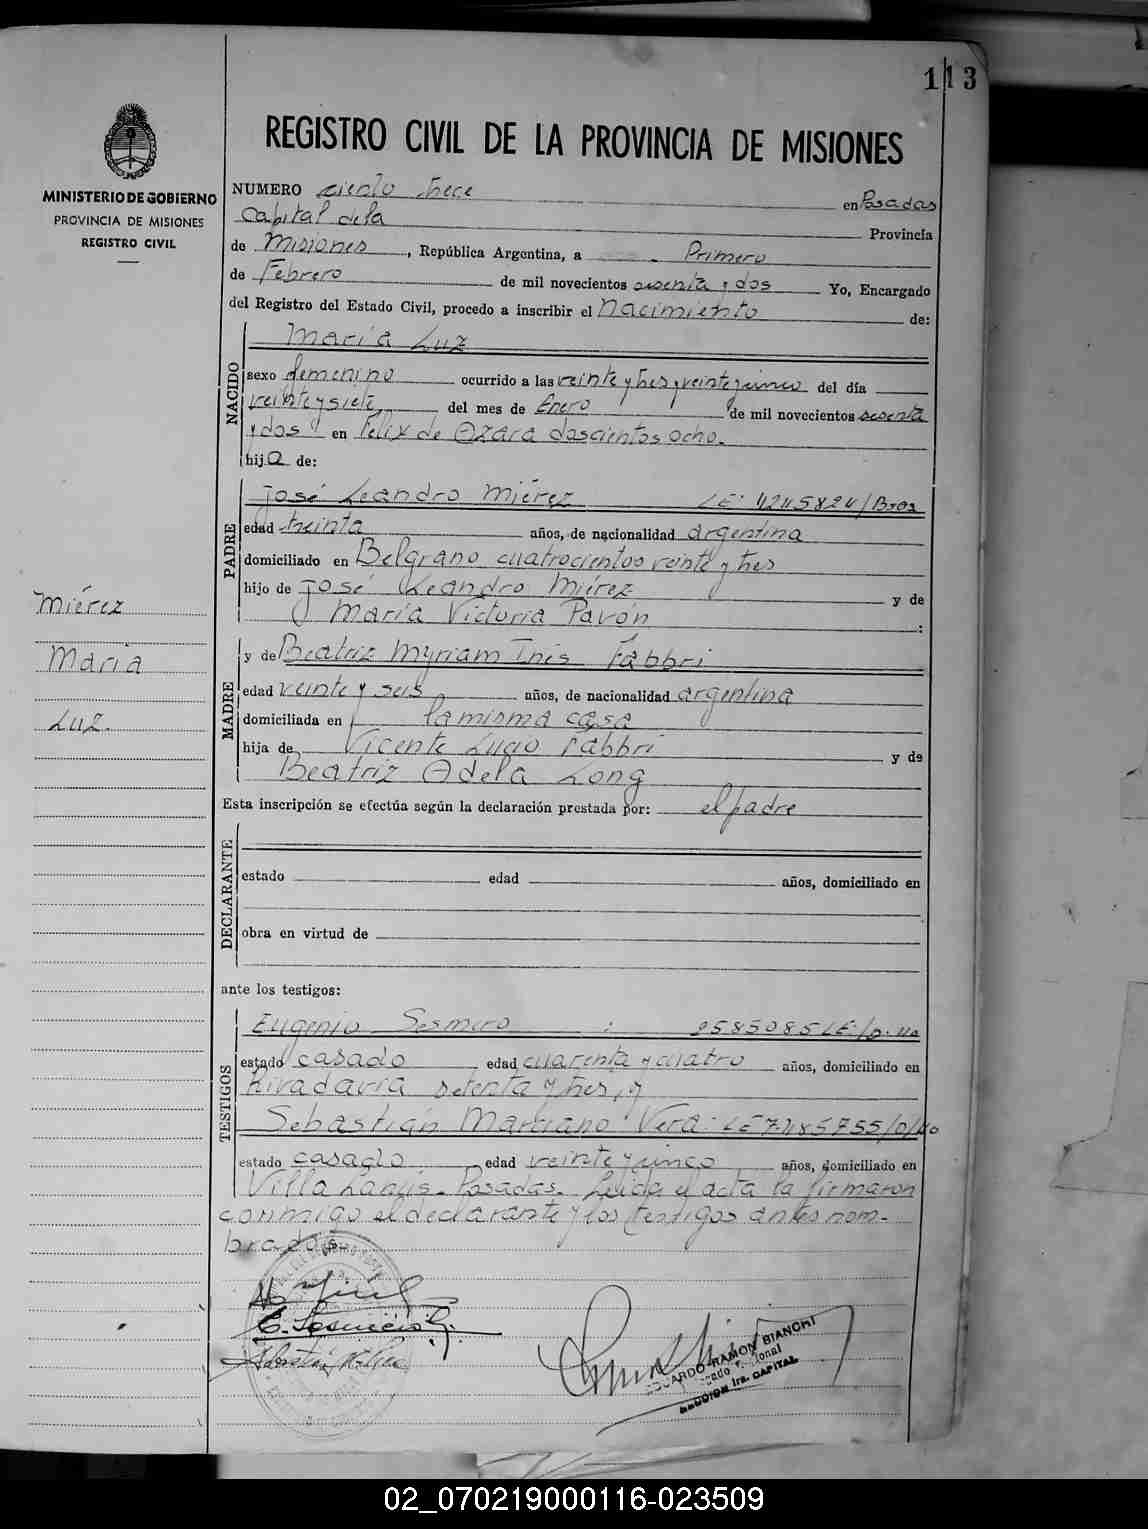 113
REGISTRO CIVIL DE LA PROVINCIA DE MISIONES
MINISTERIO DE GOBIERNO
PROVINCIA DE MISIONES
REGISTRO CIVIL
NUMERO ciento trece en Posadas
Capital de la Provincia
de Misiones, República Argentina, a Primero
de Febrero de mil novecientos sesenta y dos Yo, Encargado
del Registro del Estado Civil, procedo a inscribir el Nacimiento de:
NACIDO
María Luz
sexo femenino ocurrido a las veinte y tres y veinte y cinco del día
veinte y siete del mes de Enero de mil novecientos sesenta
y dos en Felix de Azara doscientos ocho.
hija de:
PADRE
José Leandro Miérez LE: 4245824/Bs As
edad treinta años, de nacionalidad argentina
domiciliado en Belgrano cuatrocientos veinte y tres
hijo de José Leandro Miérez y de
María Victoria Pavón :
Miérez
María
Luz.
MADRE
y de Beatriz Myriam Inés Fabbri
edad veinte y seis años, de nacionalidad argentina
domiciliada en la misma casa
hija de Vicente Lugo Fabbri y de
Beatriz Adela Long
Esta inscripción se efectúa según la declaración prestada por: el padre
DECLARANTE
estado edad años, domiciliado en
obra en virtud de
ante los testigos:
TESTIGOS
Eugenio Sesmero : LE/D.
estado casado edad cuarenta y cuatro años, domiciliado en
Rivadavia setenta y tres, y
Sebastián Marciano Vera: LE 7485755/D/
estado casado edad veinte y cinco años, domiciliado en
Villa Lanús - Posadas. Leída el acta la firmaron
conmigo el declarante y los testigos antes nom-
brados
EDUARDO RAMON BIANCHI
SECCION 1ra. CAPITAL
02_070219000116-023509